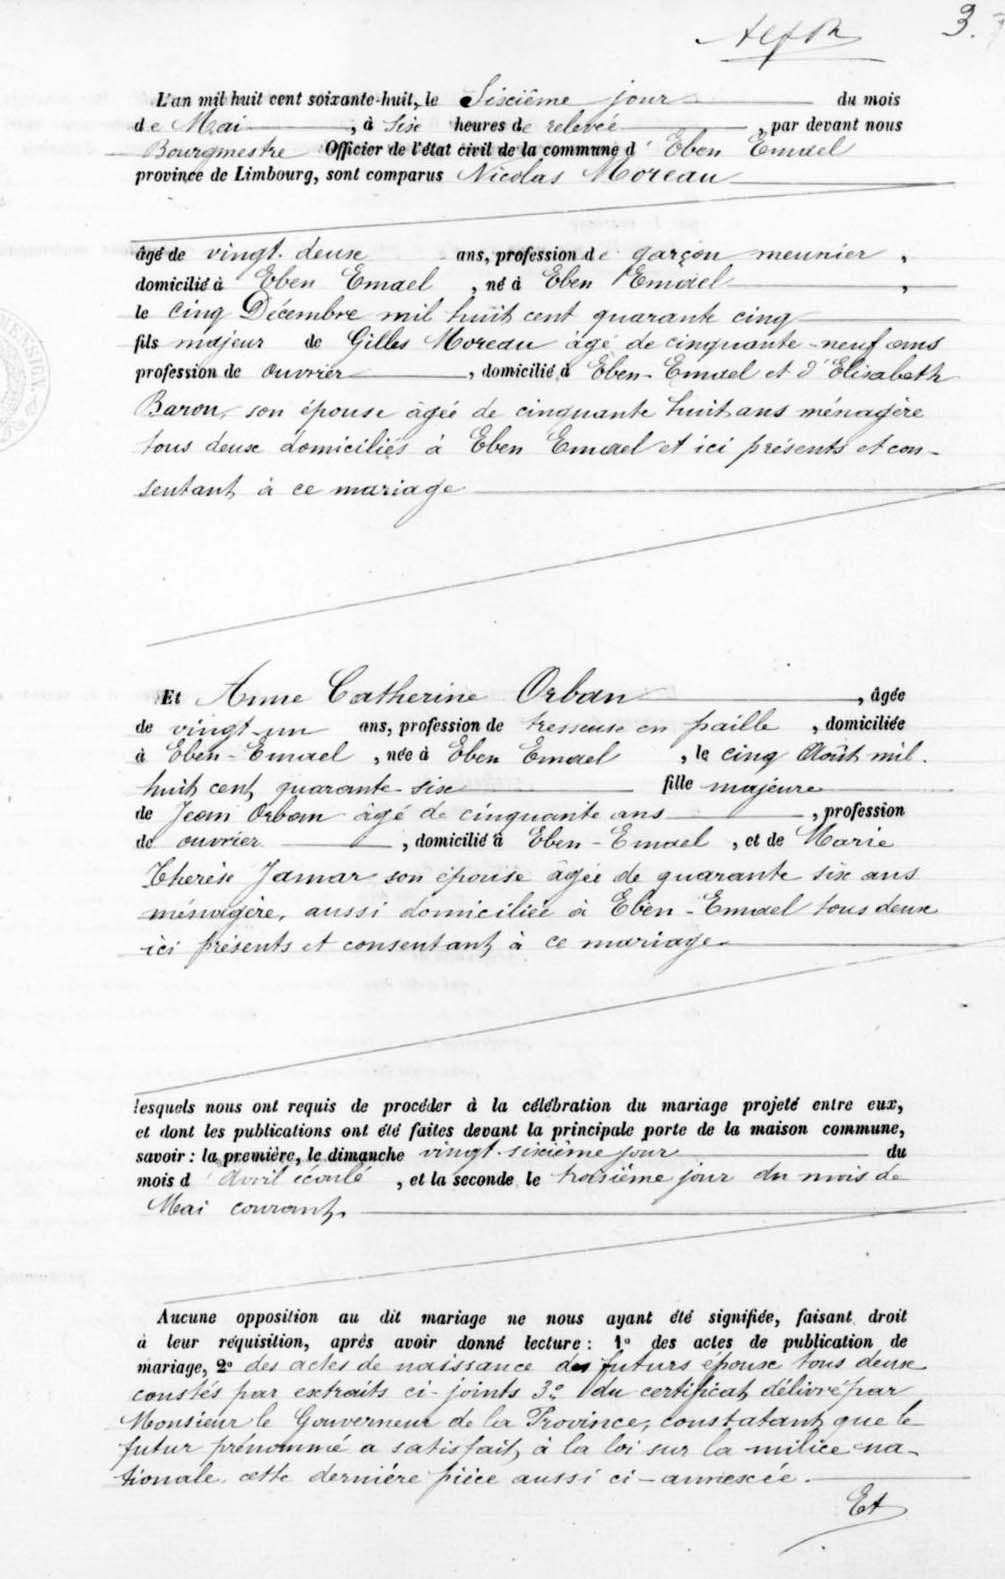 3.
L'an mil huit cent soixante-huit, le Sixième jour du mois
de Mai, à six heures de relevée, par devant nous
Bourgmestre Officier de l'état civil de la commune d'Eben Emael
province de Limbourg, sont comparus Nicolas Moreau
âgé de vingt-deux ans, profession de garçon meunier,
domicilié à Eben Emael, né à Eben Emael,
le cinq Décembre mil huit cent quarante cinq
fils majeur de Gilles Moreau âgé de cinquante-neuf ans
profession de ouvrier, domicilié à Eben-Emael et d'Elisabeth
Baron, son épouse âgée de cinquante huit ans ménagère
tous deux domiciliés à Eben Emael et ici présents et con-
sentant à ce mariage
Et Anne Catherine Orban, âgée
de vingt-un ans, profession de tresseuse en paille, domiciliée
à Eben-Emael, née à Eben Emael, le cinq Août mil
huit cent quarante-six fille majeure
de Jean Orban âgé de cinquante ans, profession
de ouvrier, domicilié à Eben-Emael, et de Marie
Thérèse Jamar son épouse âgée de quarante six ans
ménagère, aussi domiciliée à Eben-Emael tous deux
ici présents et consentant à ce mariage
lesquels nous ont requis de procéder à la célébration du mariage projeté entre eux,
et dont les publications ont été faites devant la principale porte de la maison commune,
savoir : la première, le dimanche vingt-sixième jour du
mois d'avril écoulé, et la seconde le troisième jour du mois de
Mai courant.
Aucune opposition au dit mariage ne nous ayant été signifiée, faisant droit
à leur réquisition, après avoir donné lecture : 1° des actes de publication de
mariage, 2° des actes de naissance des futurs époux tous deux
constés par extraits ci-joints 3° du certificat délivré par
Monsieur le Gouverneur de la Province, constatant que le
futur prénommé a satisfait à la loi sur la milice na-
tionale cette dernière pièce aussi ci-annexée.
Et